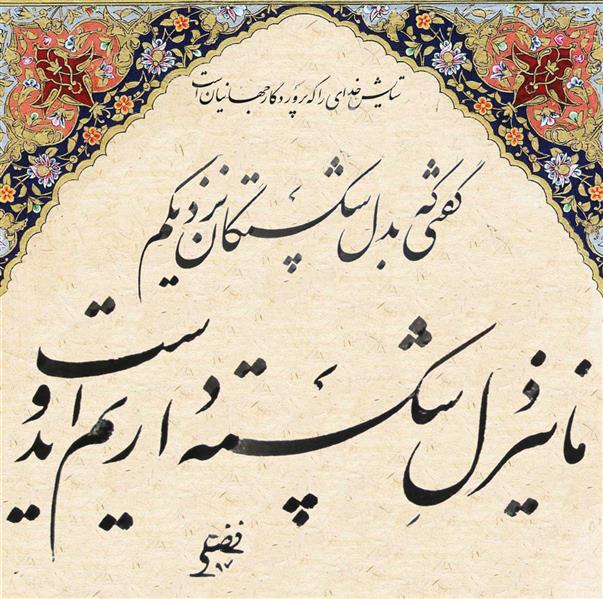 ستایش خدای را که پروردگار جهانیان است
گفتی که بدل شکستگان نزدیکم
ما نیز دل شکسته داریم ای دوست
فضلی
۱۷